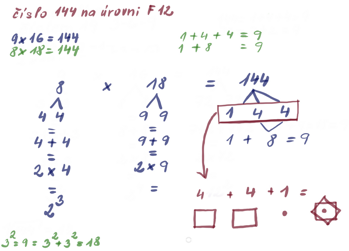 číslo 144 na úrovni F12
9 x 16 = 144
8 x 18 = 144
1 + 4 + 4 = 9
1 + 8 = 9
8 x 18 = 144
4 4 9 9 1 4 4
= =
4 + 4 9 + 9 1 + 8 = 9
= =
2 x 4 2 x 9
= =
2³
4 + 4 + 1 =
3² = 9 = 3² + 3² = 18